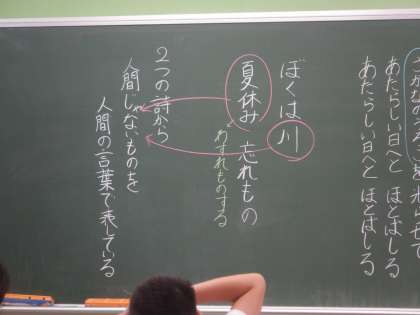 あたらしい日へと ほとばしる
あたらしい日へと ほとばしる
ぼくは川
夏休み 忘れもの
わすれものする
2つの詩から
人間じゃないものを
人間の言葉で表している